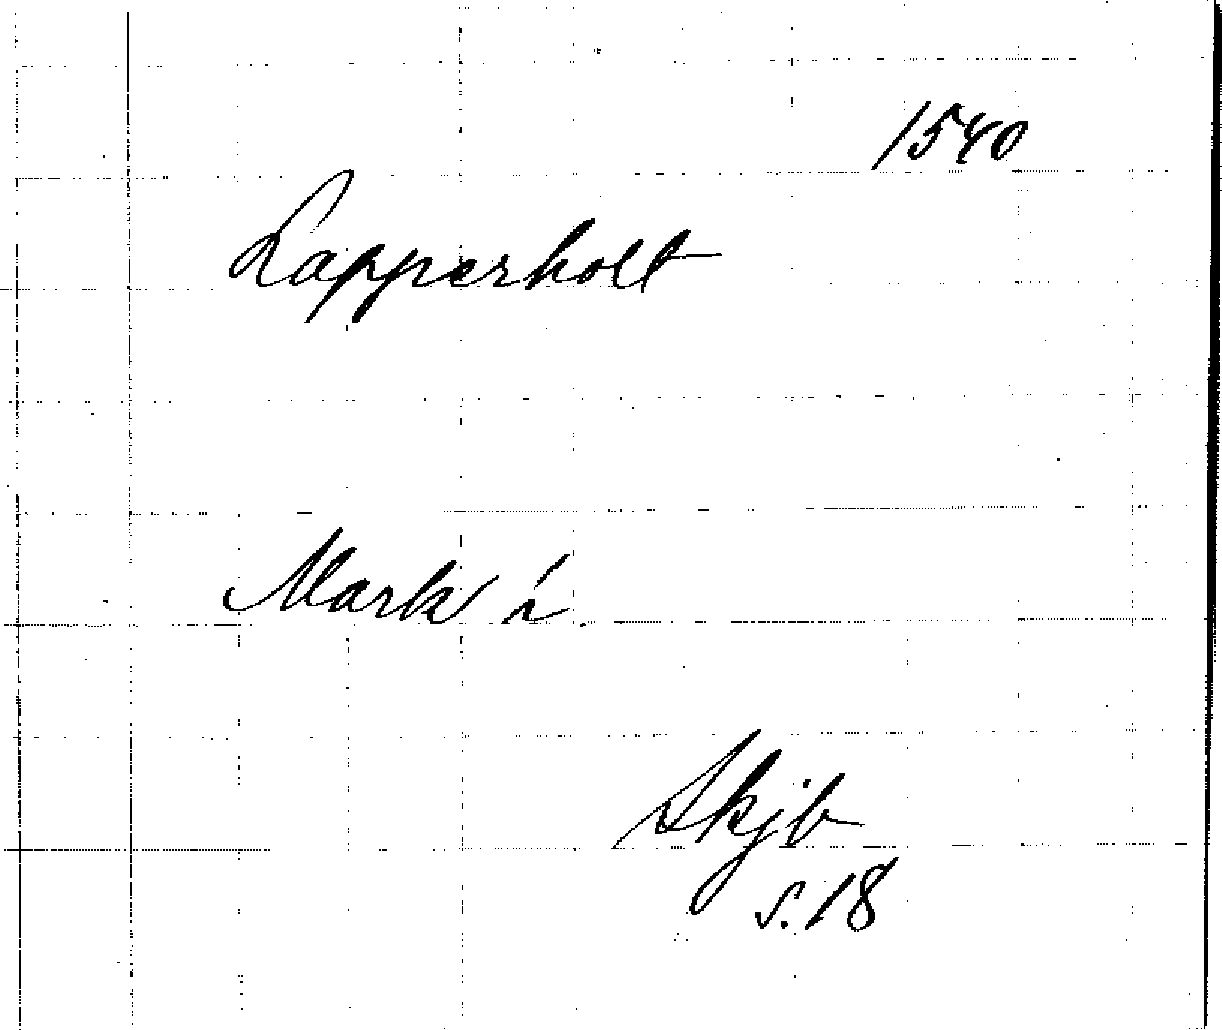 1540
Lapperholt
Mark i.
Skjb
s. 18